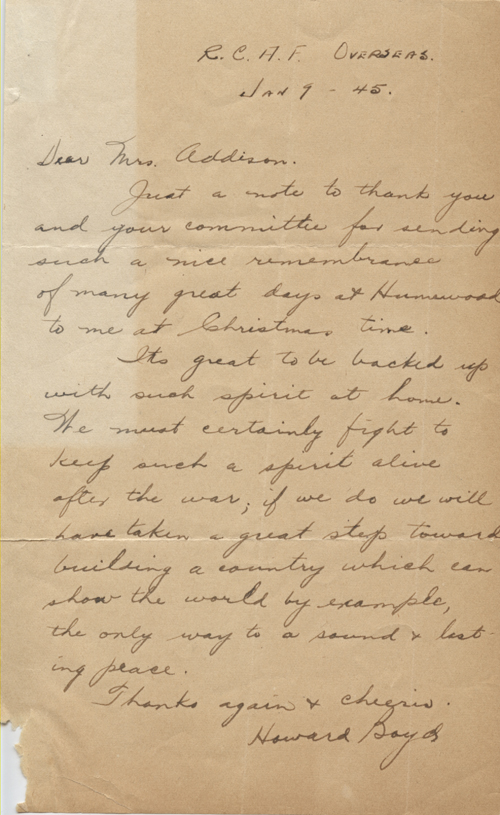 R.C.A.F. Overseas.
Jan 9 - 45.
Dear Mrs. Addison.
Just a note to thank you
and your committee for sending
such a nice remembrance
of many great days at Humewood
to me at Christmas time.
Its great to be backed up
with such spirit at home.
We must certainly fight to
keep such a spirit alive
after the war; if we do we will
have taken a great step toward
building a country which can
show the world by example,
the only way to a sound & last-
ing peace.
Thanks again & cheerio.
Howard Boyd